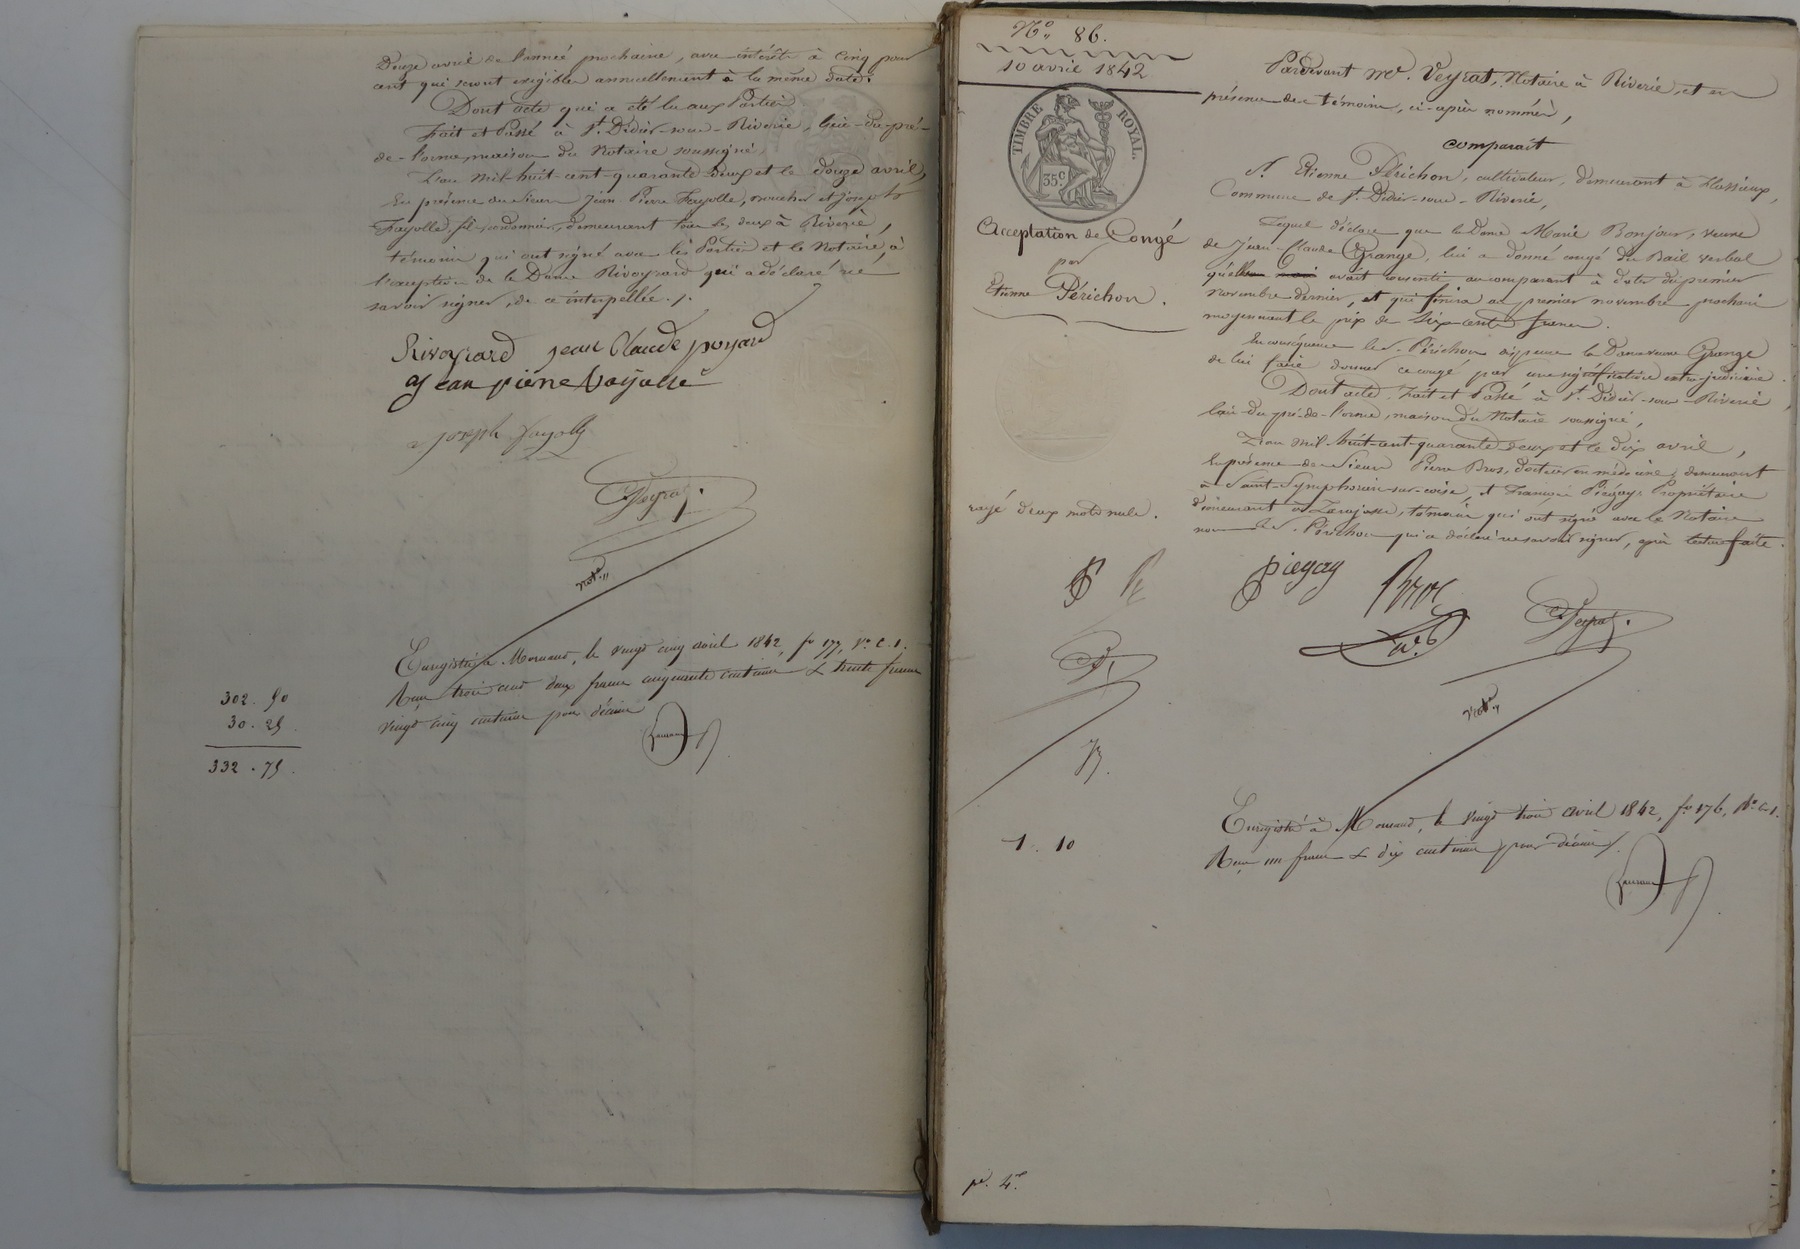 Douze avril de l'année prochaine, avec intérêts à Cinq pour
cent qui seront exigibles annuellement à la même date.
Dont acte qui a été lu aux Parties
Fait et Passé à St. Didier-sous-Riverie, lieu-du-pré-
de-l'orme, maison du Notaire soussigné,
L'an mil-huit-cent-quarante-deux et le douze avril,
En présence des Sieurs Jean Pierre Fayolle, et Joseph
Fayolle, fils, demeurant tous les deux à Riverie,
témoins qui ont signé avec les Parties et le Notaire, à
l'exception de la Dame Rivoyrard qui a déclaré ne
savoir signer, de ce interpellée ./.
Rivoyrard Jean Claude poyard
Jean pierre fayolle
Joseph fayolle
Veyrat.
Noté
Enregistré à Mornant, le vingt cinq avril 1842, fo 177, Vo. C. 1.
Reçu trois cent deux francs cinquante centimes & trente francs
vingt cinq centimes pour décime
302. 50
30. 25
332. 75.
No. 86.
10 avril 1842
TIMBRE ROYAL.
35c.
Acceptation de Congé
par
Etienne Périchon.
Pardevant Me. Veyrat, Notaire à Riverie, et en
présence des témoins, ci-après nommés,
comparait
S. Etienne Périchon, cultivateur, demeurant à
Commune de St. Didier-sous-Riverie,
Lequel déclare que la Dame Marie Bonjour, veuve
de Jean-Claude Grange, lui a donné congé du Bail verbal
qu'elle avait consenti au comparant à dater du premier
novembre dernier, et qui finira au premier novembre prochain
moyennant le prix de Six-cents francs.
En conséquence le S. Périchon dispense la Dame veuve Grange
de lui faire donner ce congé par une signification extra-judiciaire.
Dont acte, Fait et Passé à St. Didier-sous-Riverie,
lieu-du-pré-de-l'orme, maison du Notaire soussigné,
L'an mil-huit-cent-quarante deux et le dix avril,
En présence des Sieurs Pierre Bros, docteur en médecine, demeurant
à Saint-Symphorien-sur-coise, et François Piégay, Propriétaire
demeurant à Larajasse, témoins qui ont signé avec le Notaire
non le S. Périchon qui a déclaré ne savoir signer, après lecture faite.
rayé deux mots nuls.
piegay Bros
Veyrat.
Noté
1. 10
Enregistré à Mornant, le vingt trois avril 1842, fo 176, Vo. C. 1.
Reçu un franc & dix centimes pour décime